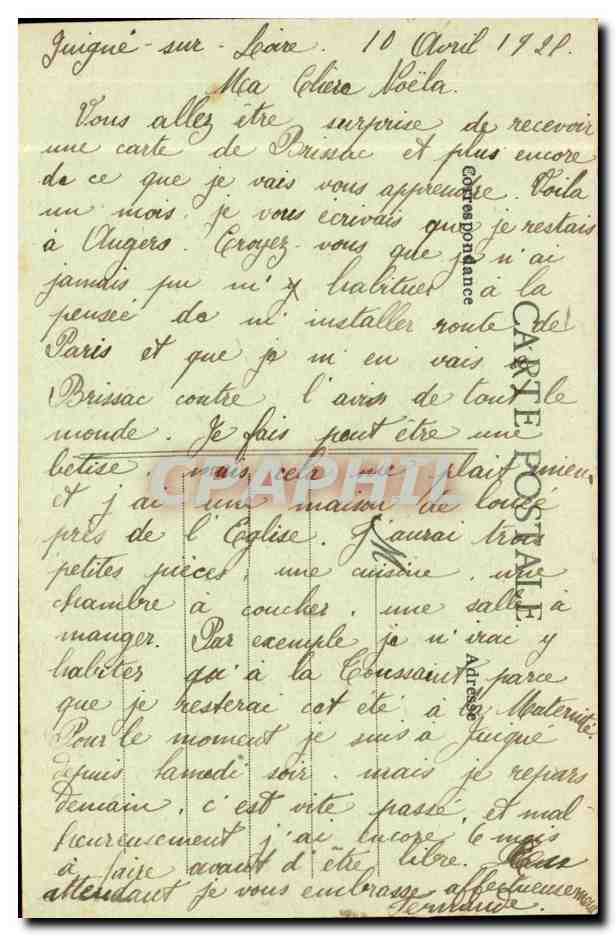 Juigné-sur-Loire. 10 Avril 1928.
Ma Chère Noëla.
Vous allez être surprise de recevoir
une carte de Brissac et plus encore
de ce que je vais vous apprendre. Voila
un mois, je vous écrivais que je restais
à Angers. Croyez-vous que je n'ai
jamais pu m'y habituer à la
pensée de m'installer route de
Paris et que je m'en vais à
Brissac contre l'avis de tout le
monde. Je fais peut être une
bêtise, mais cela me plait mieux
et j'ai une maison de louée
près de l'Eglise. J'aurai trois
petites pièces, une cuisine, une
chambre à coucher, une salle à
manger. Par exemple je n'irai y
habiter qu'à la Toussaint parce
que je resterai cet été à la Maternité.
Pour le moment je suis à Juigné
depuis Samedi soir, mais je repars
demain, c'est vite passé, et mal-
heureusement j'ai encore 6 mois
à faire avant d'être libre. En
attendant je vous embrasse affectueusement
Fernande.
CARTE POSTALE
Correspondance
Adresse
M
CPAPHIL